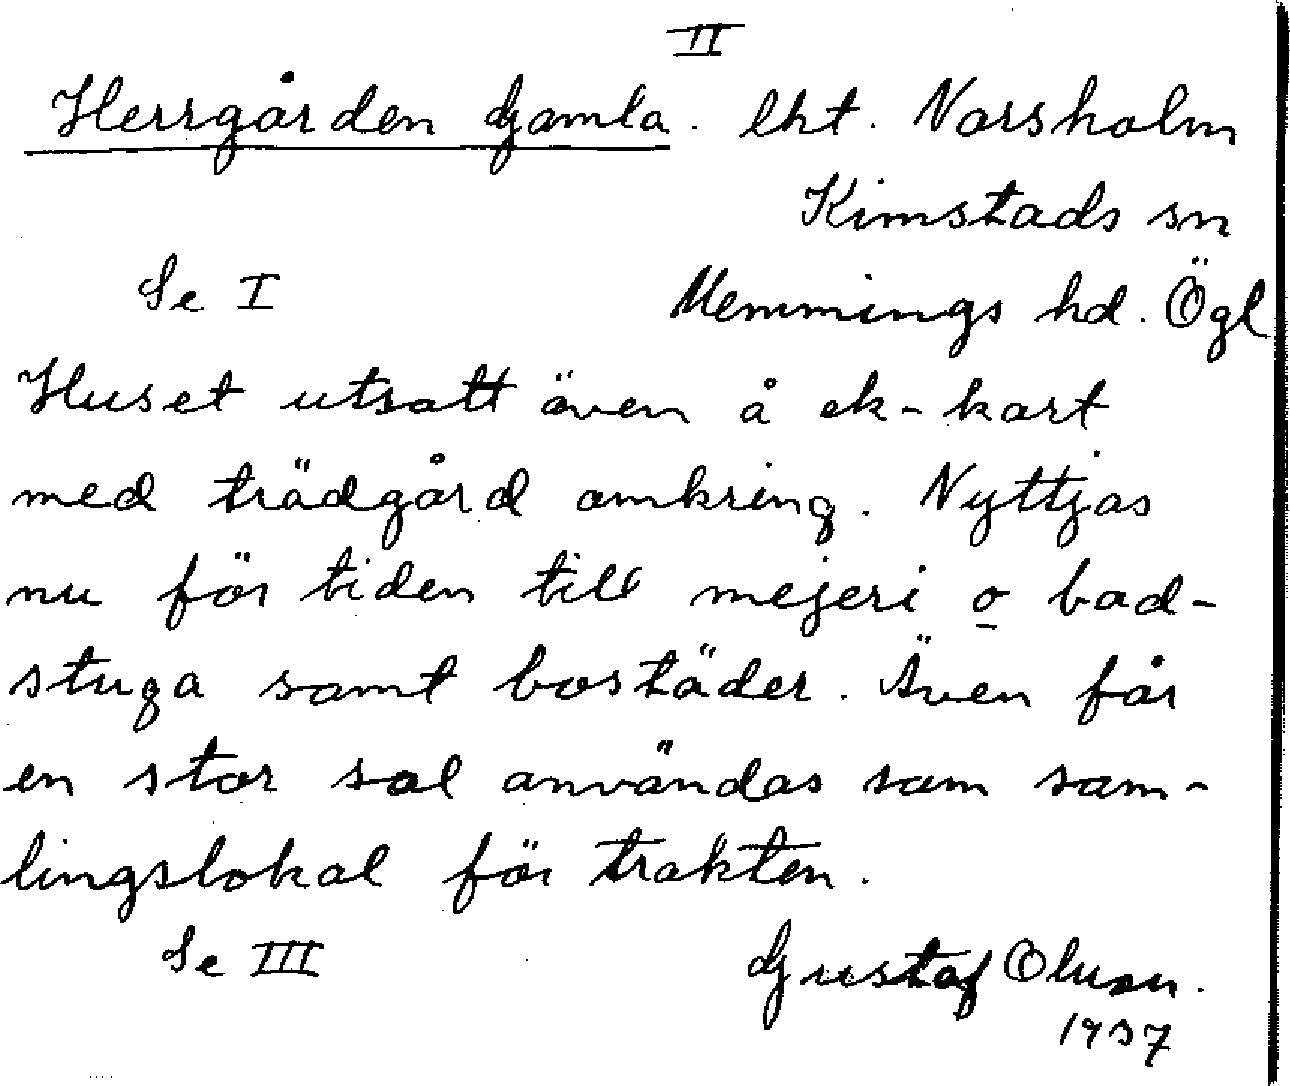 II
Herrgården Gamla. lht. Norsholm
Kimstads sn
Se I Memmings hd. Ögl
Huset utsatt även å ek-kart
med trädgård omkring. Nyttjas
nu för tiden till mejeri o bad-
stuga samt bostäder. Även får
en stor sal användas som sam-
lingslokal för trakten.
Se III Gustaf Olsson.
1937